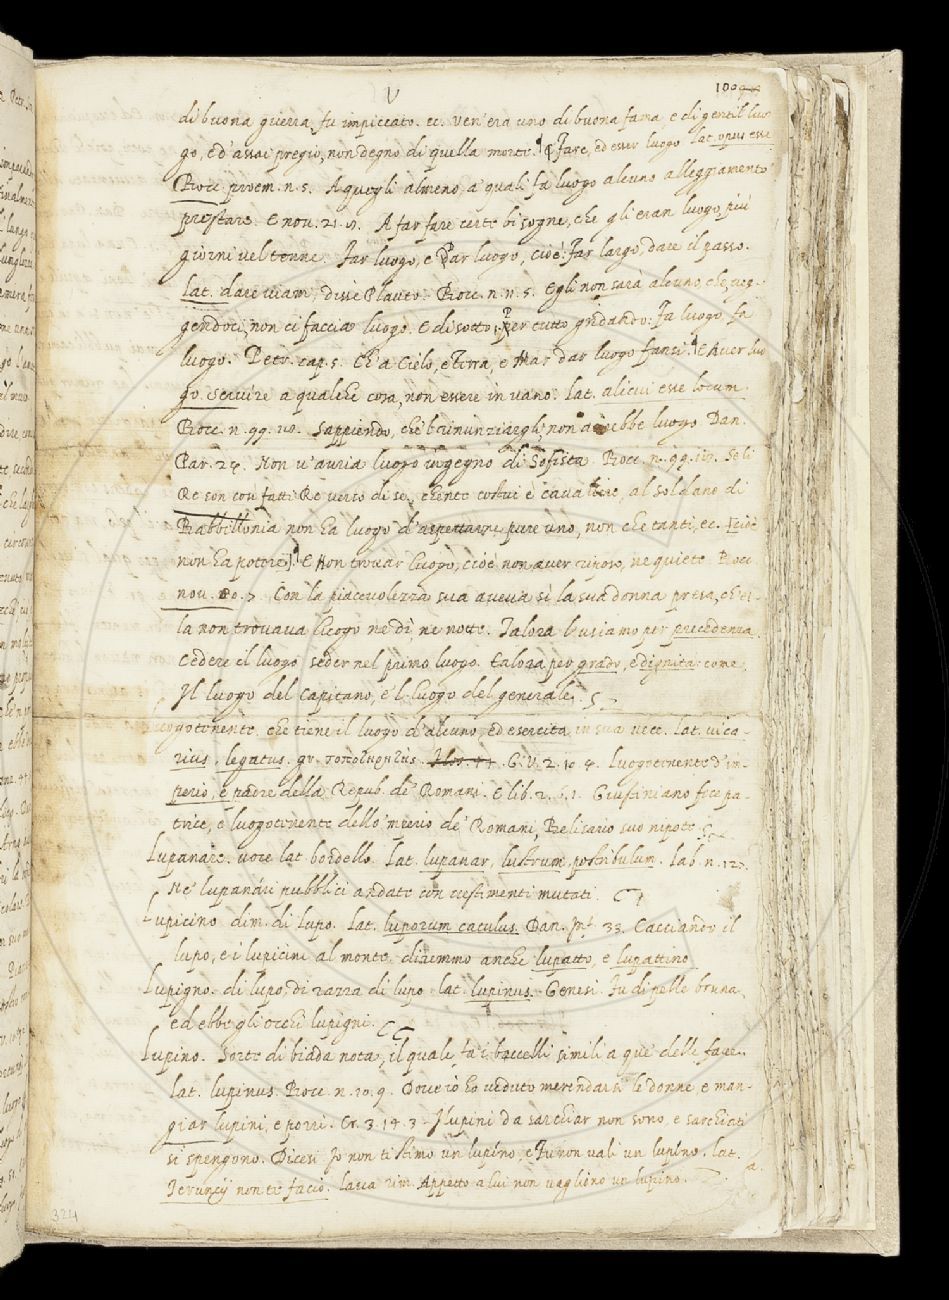 V
100
di buona guerra, fu impiccato. ec. Ven'era uno di buona fama, e di gentil luo
go, ed'assai pregio, non degno di quella morte. ¶ E fare, ed esser luogo lat. opus esse
Bocc. proem. n. 5. A quegli almeno, a quali fa luogo alcuno alleggiamento
prestare. E nov. 21. Affar fare certe bisogne, che gli eran luogo, più
giorni vel tenne. Far luogo, e Dar luogo, cioè: Far largo, dare il passo.
lat. dare viam, disse Plauto. Bocc. n. 5. Egli non sarà alcuno, che veg-
gendoci, non ci faccia luogo. E di sotto: per tutto gridando: Fa luogo, fa
luogo. Petr. cap. 5. Ch'a Cielo, e Terra, e Mar dar luogo fansi. ¶ E Aver luo
go. Servire a qualche cosa, non essere in vano. lat. alicui esse locum.
Bocc. n. 99. Sappiendo, che 'l rinunziargli, non avrebbe luogo. Dan.
Par. 24. Non v'avria luogo ingegno di Sofista. Bocc. n. 99. Se li
Re son così fatti Re verso di se, chente costui è cavaliere, al Soldano di
Babbillonia non ha luogo d'aspettarne pure uno, non che tanti, ec. [cioè
non ha potere]. ¶ E Non trovar luogo, cioè non aver riposo, ne quiete Bocc
nov. 80. 7. Con la piacevolezza sua aveva sì la sua donna presa, ch'el-
la non trovava luogo ne dì, ne notte. Talora l'usiamo per precedenza.
Cedere il luogo, seder nel primo luogo. talora per grado, e dignità: come,
Il luogo del Capitano, e 'l luogo del generale.
Luogotenente, che tiene il luogo d'alcuno, ed esercita in sua vece. lat. vica-
rius, legatus. gr. τοποτηρητὴς. G. V. 2. 10. 4. Luogotenente d'im-
perio, e padre della Repub. de' Romani. E lib. 2. 6. 1. Giustiniano fece pa-
trice, e luogotenente dello 'mperio de' Romani, Belisario suo nipote
Lupanare. voce lat. bordello. lat. lupanar, lustrum, postribulum. Lab. n. 127.
Ne' lupanari pubblici andate con vestimenti mutati.
Lupicino dim. di lupo. lat. luporum catulus. Dan. Inf. 33. Cacciando il
lupo, e i lupicini al monte. diremmo anche lupatto, e lupattino
Lupigno. di lupo, di razza di lupo lat. lupinus. Genesi. Fu di pelle bruna,
ed ebbe gli occhi lupigni.
Lupino. Sorte di biada nota, il quale fa i baccelli simili a que' delle fave.
lat. lupinus. Bocc. n. 10. 9. Dove io ho veduto merendarsi le donne e man-
giar lupini, e porri. Cr. 3. 14. 3. I lupini da sarchiar non sono, e sarchiati
si spengono. Dicesi Io non ti stimo un lupino, e Tu non vali un lupino. lat.
Teruncij non te facio. Lasca rim. Appetto a lui non vagliono un lupino.
324